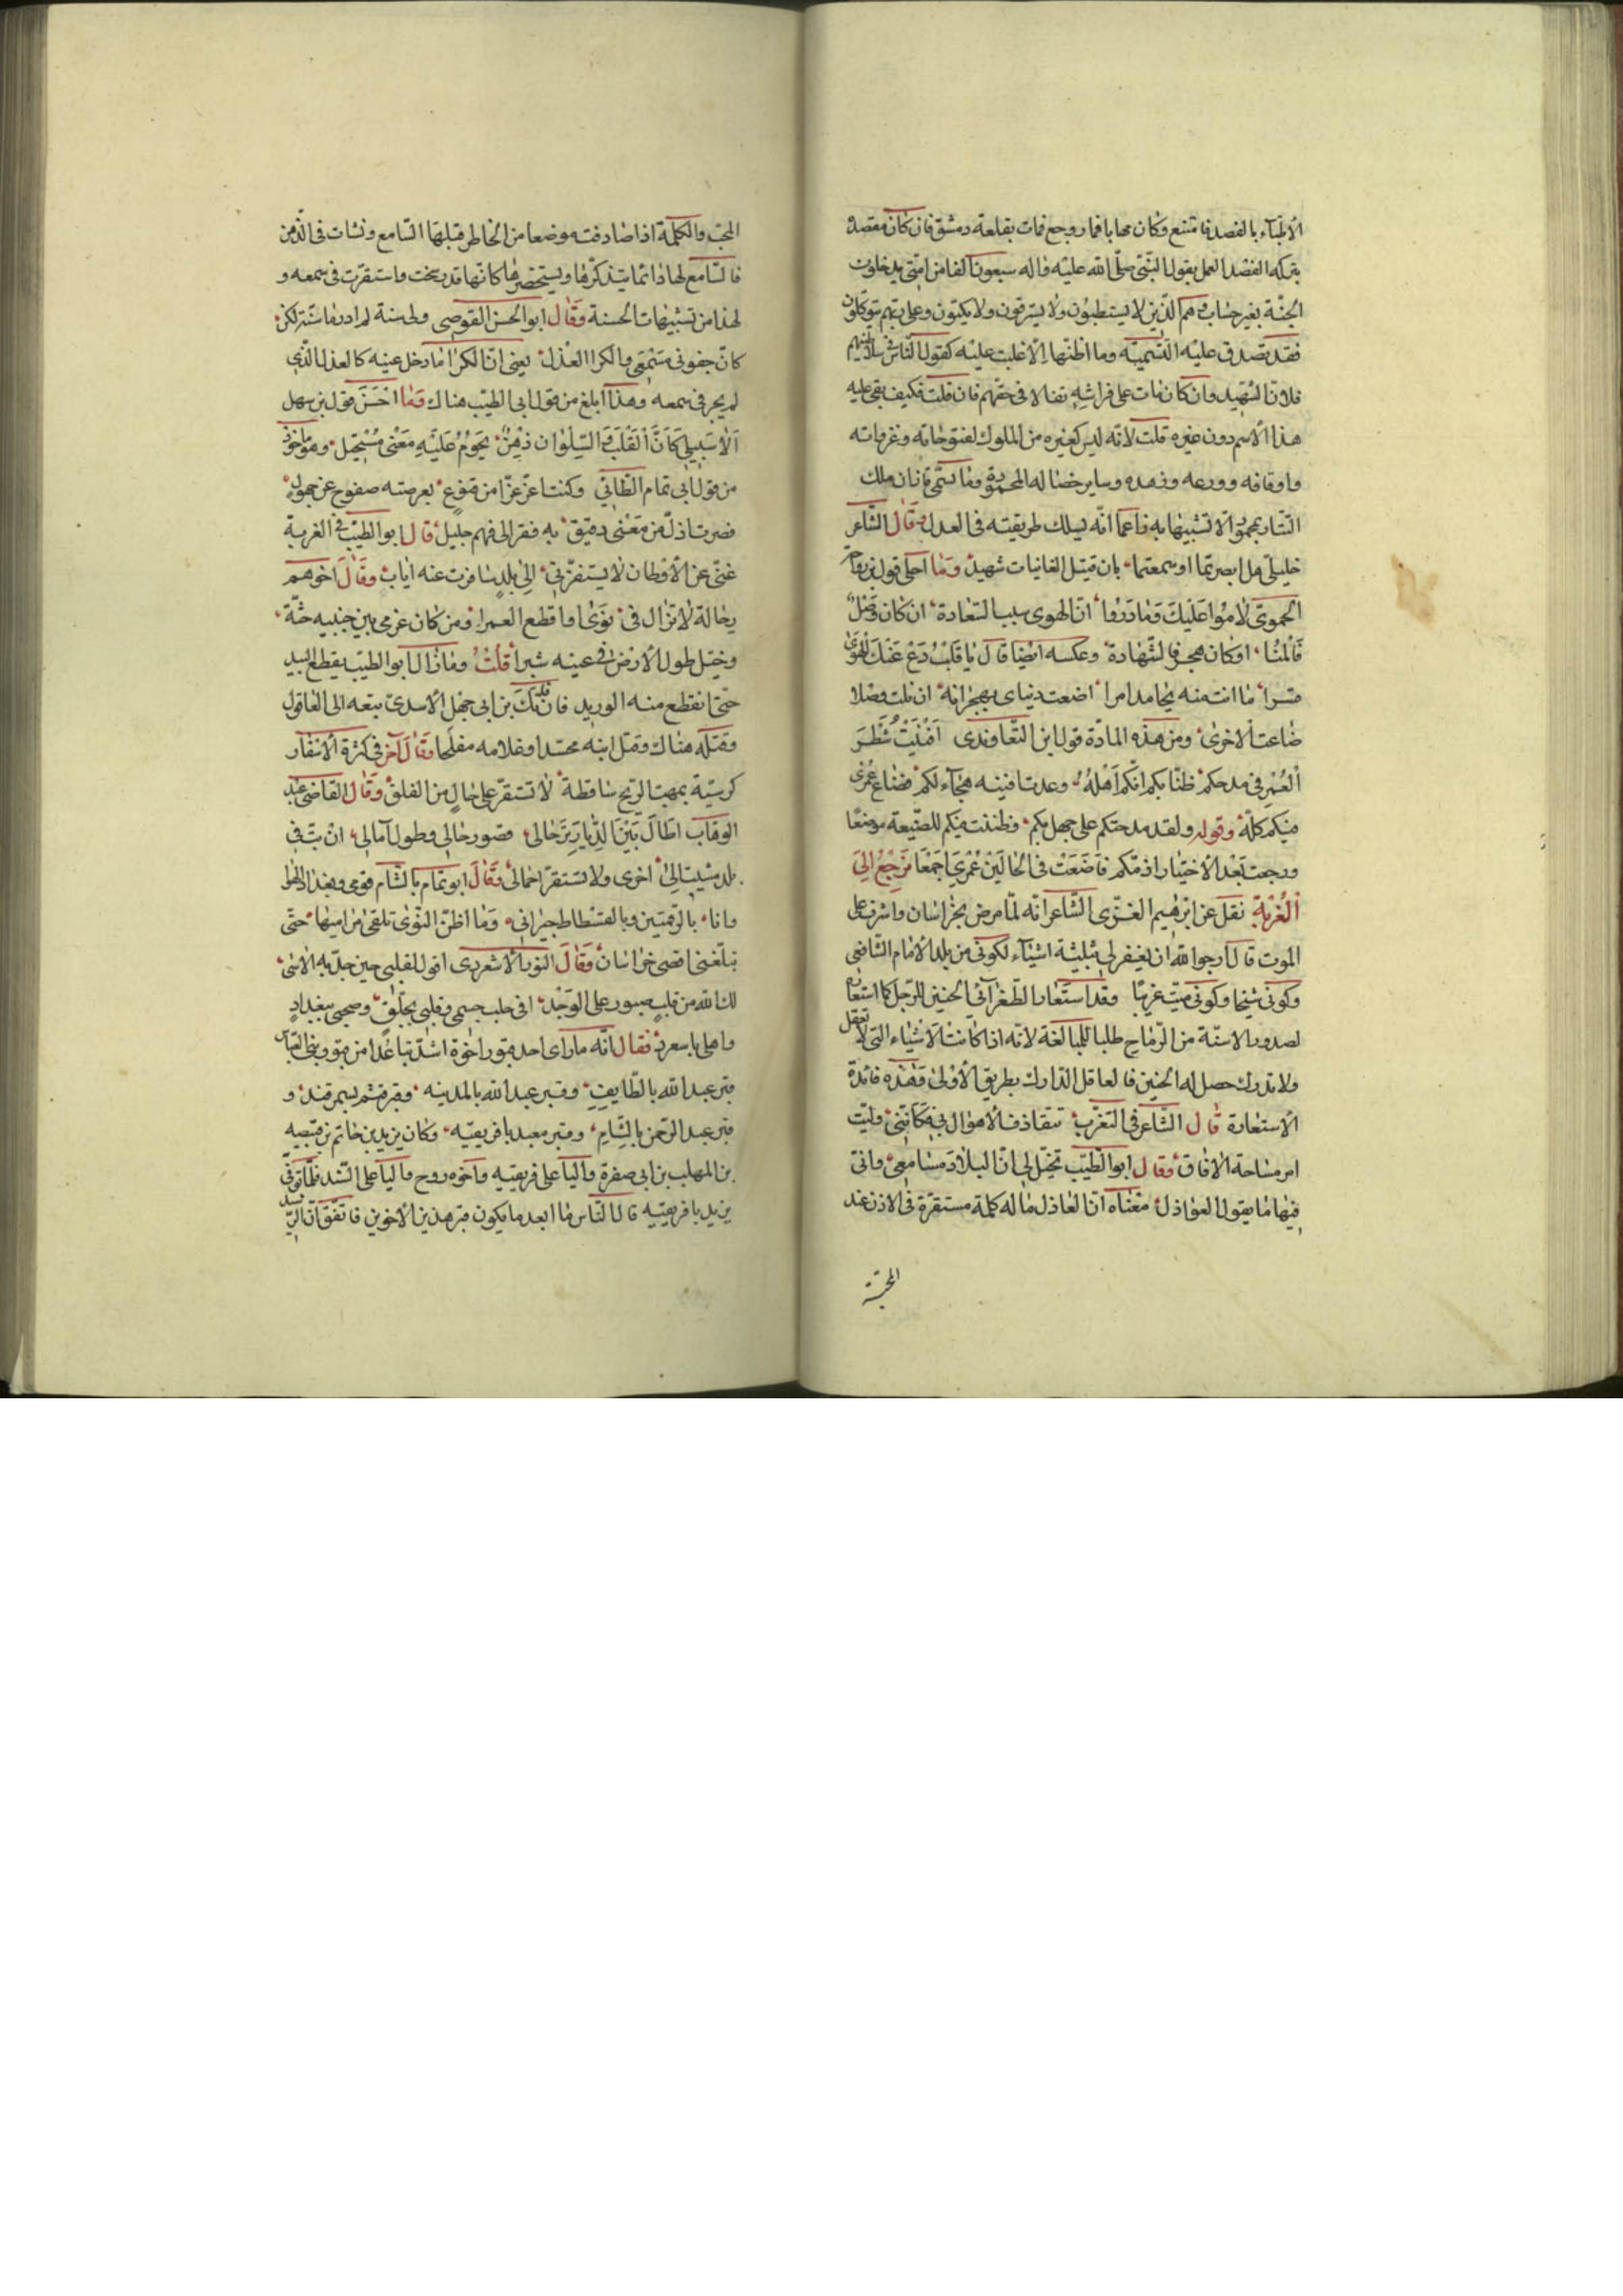 الأطباء بالفصد فامتنع وكان مهابا فما روجع فمات بقلعة دمشق فان كان مقصده
بتركه الفصد العمل بقول النبى صلى الله عليه واله سبعون الفا من امتى يدخلون
الجنة بغير حساب وهم الذين لا يستطبون ولا يسترقون ولا يكتوون وعلى ربهم يتوكلون
فقد تصدق عليه التسمية وما اظنها الا غلبت عليه كقول الناس فى سلاطينهم
فلان الشهيد وان كان مات على فراشه تفالا فى حقهم فان قلت فكيف بقى عليه
هذا الاسم دون غيره قلت لانه ليس كغيره من الملوك لفتوحاته وغزواته
واوقافه وورعه وزهده وساير خصاله المحمودة وما تسمى قازان ملك
التتار بمحمود الا تشبيها به زاعما انه يسلك طريقته فى العدل وقال الشاعر
خليلى هل ابصرتما او سمعتما بان قتيل الغانيات شهيد وما احلى قول بن رواحة
الحموى لاموا عليك وما دروا ان الهوى سبب السعادة ان كان وصل
فالمنا او كان هجر فالشهادة وعكسه ايضا قال يا قلب دع عنك الهوى
قسرا ما انت منه بحامد امرا اضعت دنياى بهجرانه ان نلت وصلا
ضاعت الاخرى ومن هذه المادة قول ابن التعاوندى افنيت شطر
العمر فى مدحكم ظنا بكم انكم اهله وعدت افنيه هجاء لكم فضاع عمرى
فيكم كله وقوله ولقد مدحتكم على جهل بكم وظننت فيكم للصنيعة موضعا
ورجعت بعد الاختيار اذمكم فاضعت فى الحالين عمرى اجمعا نرجع الى
الغربة نقل عن ابرهيم الغزى الشاعر انه لما مرض بخراسان واشرف على
الموت قال ارجوا الله ان يغفر لى بثلثة اشياء لكونى من بلد الامام الشافعى
وكونى شيخا وكونى ميت غريبا وقد استعار الطغرآئى الحنين للرحل كما استعاره
لصدور الاسنة من الرماح طلبا للمبالغة لانه اذا كانت الاشياء التى لا تعقل
ولا تدرك حصل له الحنين فالعاقل الدارك بطريق الأولى وهذه فائدة
الاستعارة قال الشاعر فى التغرب تتقاذف الاهوال بى فكاننى وليت
امر مساحة الافاق وقال ابو الطيب تخيل لى ان البلاد مسامعى وانى
فيها ما يقول العواذل معناه ان العاذل ما له كلمة مستقرة فى الاذن عند
المحب والكلمة اذا صادفت موضعا من الخاطر قبلها السامع ونشات فى الذهن
فالسامع لها دائما يتذكرها ويستحضرها كانها قد رسخت واستقرت فى سمعه و
هذا من تشبيهات الحسنة وقال ابو الحسن القوصى ولى سنة لم ادر ما سنة الكرى
كان جفونى مسمعى والكرا العذل يعنى ان الكرا ما دخل عينه كالعذل الذى
لم يجر فى سمعه وهذا ابلغ من قول ابى الطيب هناك وما احسن قول بن سهل
كان القلب والسلوان ذهن يحوم عليه معنى مستحيل وهو ماخوذ
من قول ابى تمام الطائى وكنت اعز عزا من قنوع يعرضه صفوح عن جهول
فصرت اذل من معنى دقيق به فقر الى فهم جليل قال ابو الطيب فى الغربة
غنى عن الأوطان لا يستفزنى الى بلد سافرت عنه اياب وقال اخوهم
رحالة لا تزال فى نوى او اقطع العمرا ومن كان عزمى بين جنبيه حثه
وخيل طول الارض فى عينه شبرا قلت وما زال ابو الطيب يقطع البيد
حتى انقطع منه الوريد فان فاتك بن ابى جهل الاسدى تبعه الى العاقول
وقتله هناك وقتل ابنه محسدا وغلامه مفلحا وقال آخر فى كثرة الاسفار
كريشة بمهب الريح ساقطة لا تستقر على حال من القلق وقال القاضى عبد
الوهاب اطال بين الديار ترحالى قصور حالى وطول آمالى ان بت فى
بلد مشيت الى اخرى ولا تستقر احمالى وقال ابو تمام بالشام قومى وبغداد الهوا
وانا بالرقمتين وبالفسطاط جيرانى وما اظن النوى تلقى مراميها حتى
تبلغنى اقصى خراسان وقال النور الاشعردى اقول لقلبى حين جد به الاسى
لك الله من قلب صبور على الوجد افى حلب جسمى وقلبى بجلق وصحبى ببغداد
واهلى باسعرد فقال انه ما راى احد قبور اخوة اشد تباعدا من قبور بنى العباس
قبر عبد الله بالطايف وقبر عبد الله بالمدينه وقبر قثم بسمرقند و
قبر عبد الرحمن بالشام وقبر معبد بافريقيه وكان يزيد بن حاتم بن قبيصه
بن المهلب بن ابى صفرة واليا على افريقيه واخوه روح واليا على السند فلما توفى
يزيد بافريقيه قال الناس ما ابعد ما يكون قبر هذين الاخوين فاتفق ان الرشيد